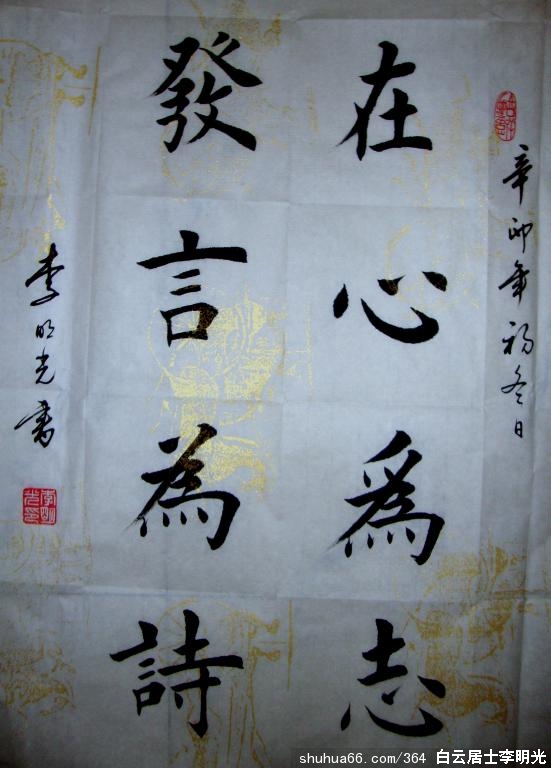 辛卯年初冬日
在心爲志
發言為詩
李明光書
李明光印
shuhua66.com/364 白云居士李明光